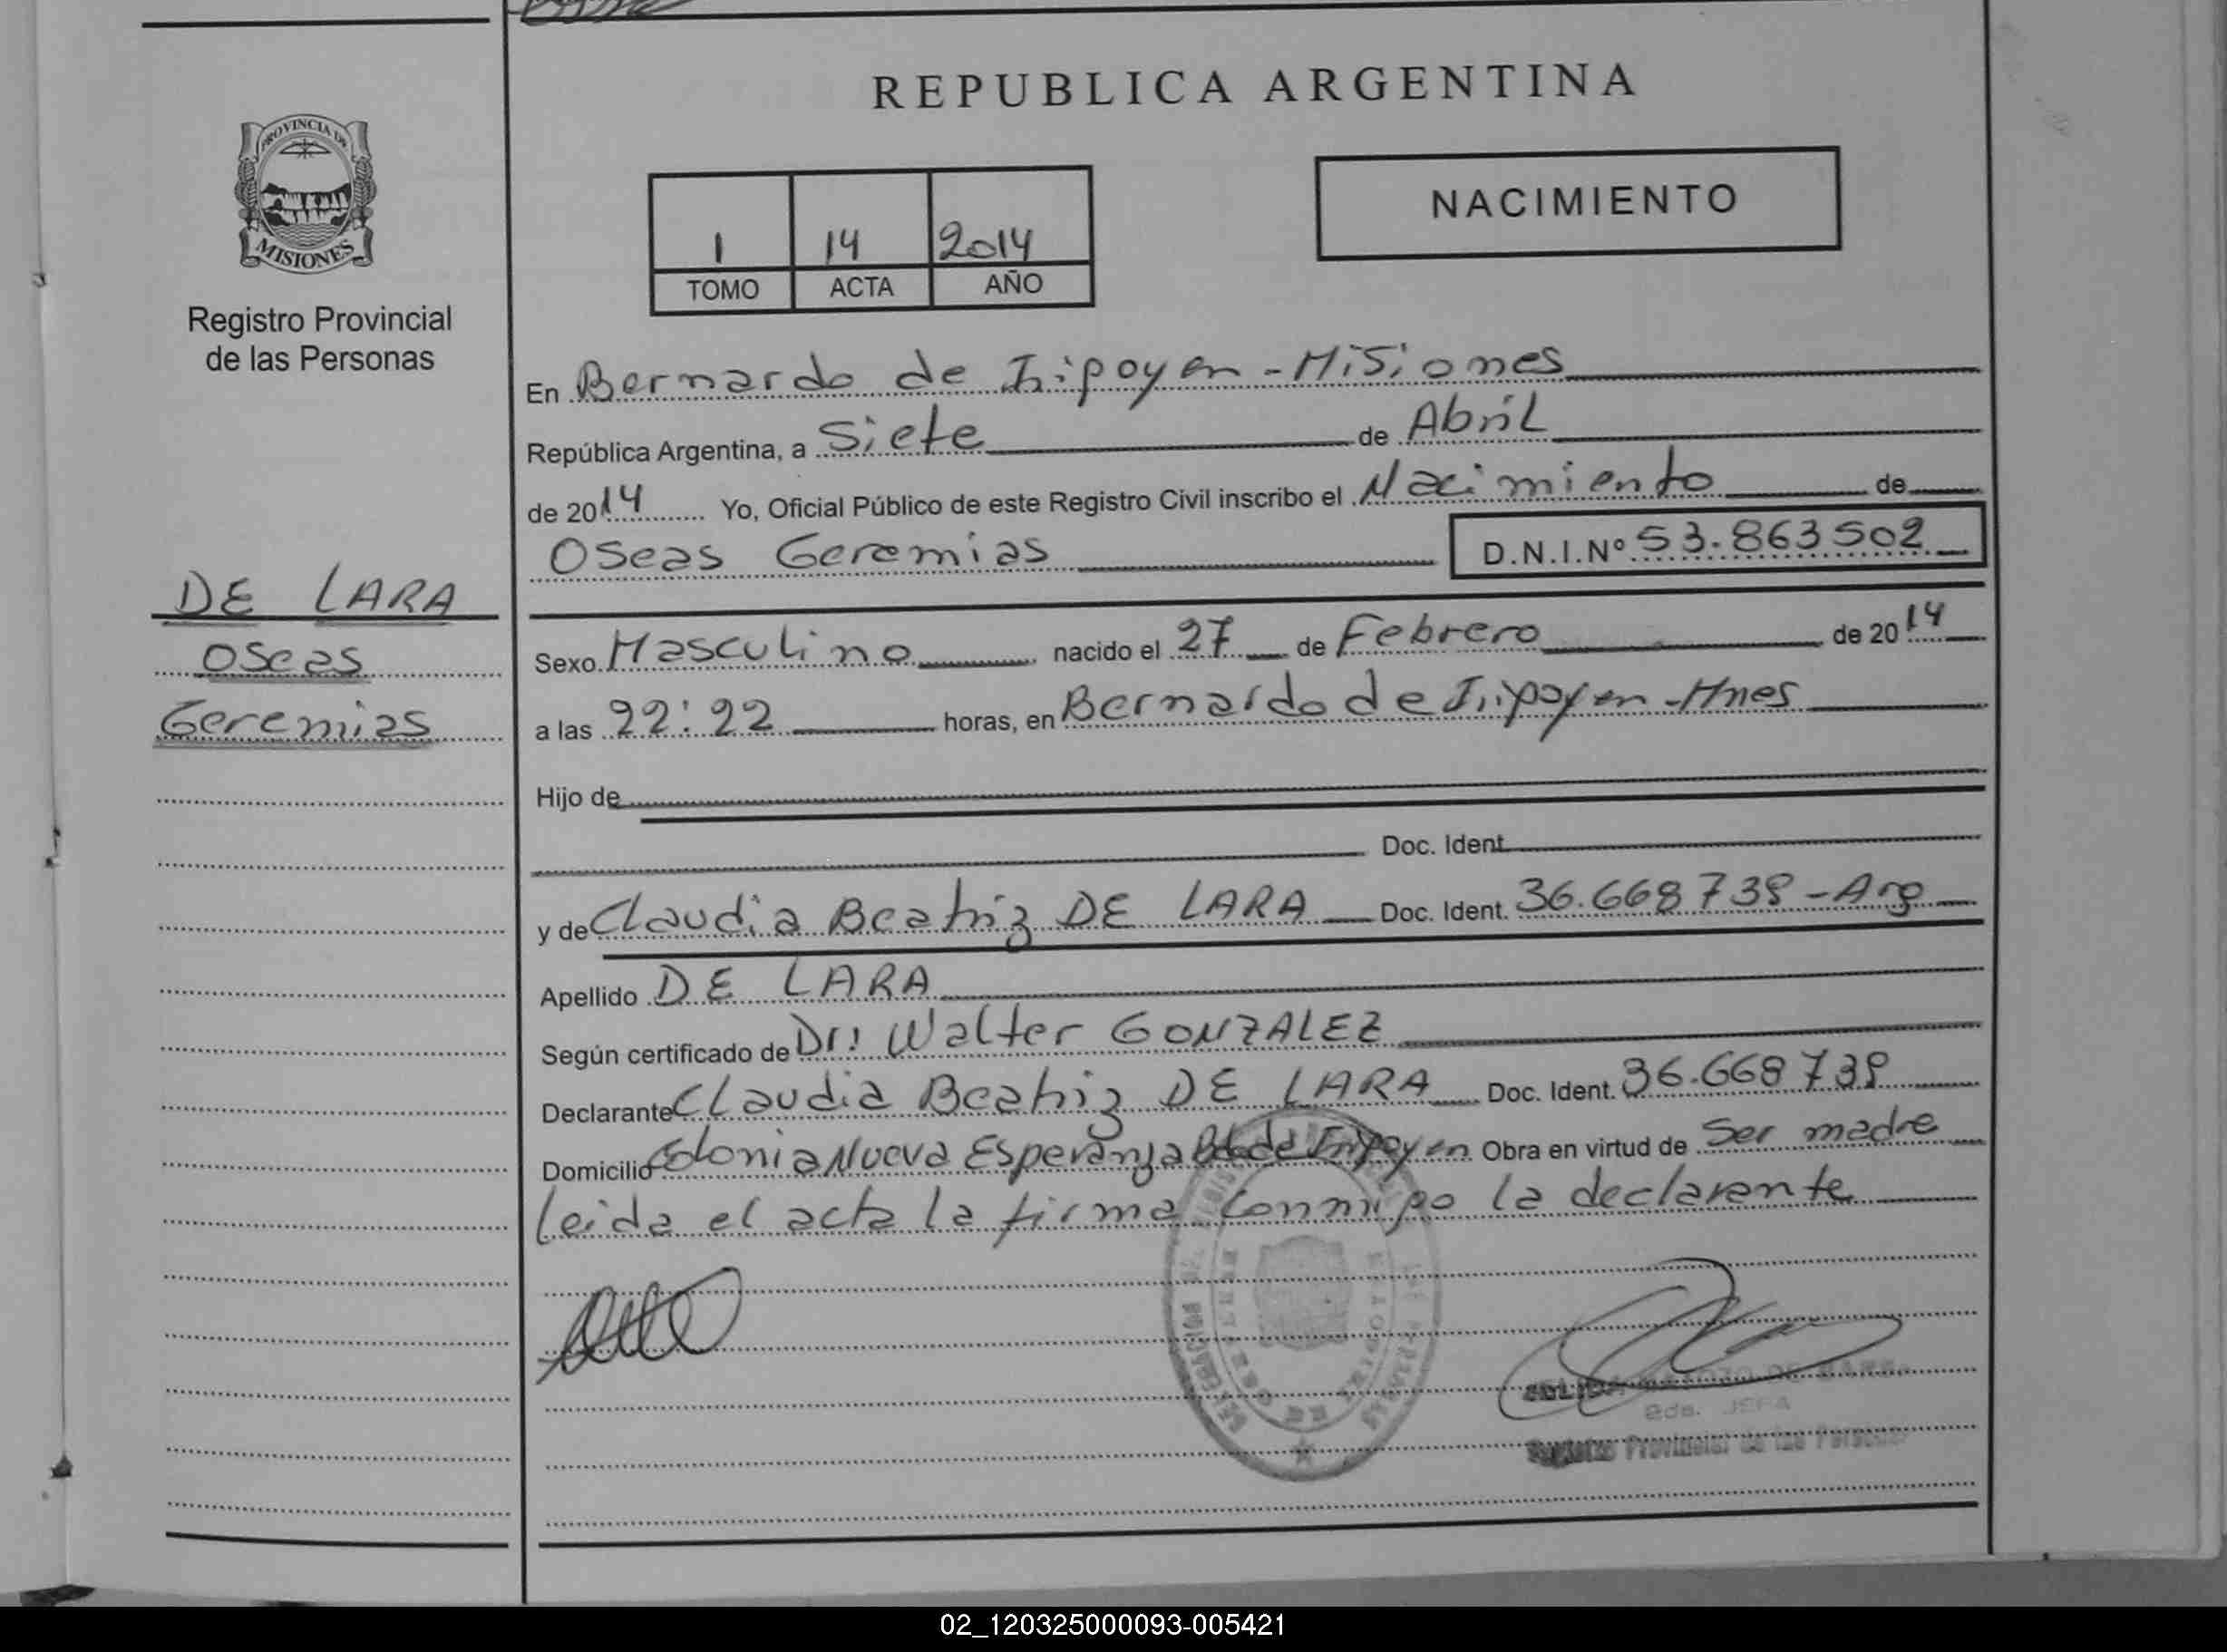 REPUBLICA ARGENTINA
PROVINCIA DE
MISIONES
Registro Provincial
de las Personas
NACIMIENTO
1 14 2014
TOMO ACTA AÑO
En Bernardo de Irigoyen - Misiones
República Argentina, a Siete de Abril
de 2014 Yo, Oficial Público de este Registro Civil inscribo el Nacimiento de
Oseas Geremias D.N.I.Nº 53.863502
DE LARA
Oseas
Geremias
Sexo Masculino nacido el 27 de Febrero de 2014
a las 22:22 horas, en Bernardo de Irigoyen - Mnes
Hijo de
Doc. Ident.
y de Claudia Beatriz DE LARA Doc. Ident. 36.668738 - Arg
Apellido DE LARA
Según certificado de Dr: Walter GONZALEZ
Declarante Claudia Beatriz DE LARA Doc. Ident. 36.668738
Domicilio Colonia Nueva Esperanza Bdo de Irigoyen Obra en virtud de Ser madre
leida el acta la firma conmigo la declarante
JEFA
Provincial de las Personas
02_120325000093-005421